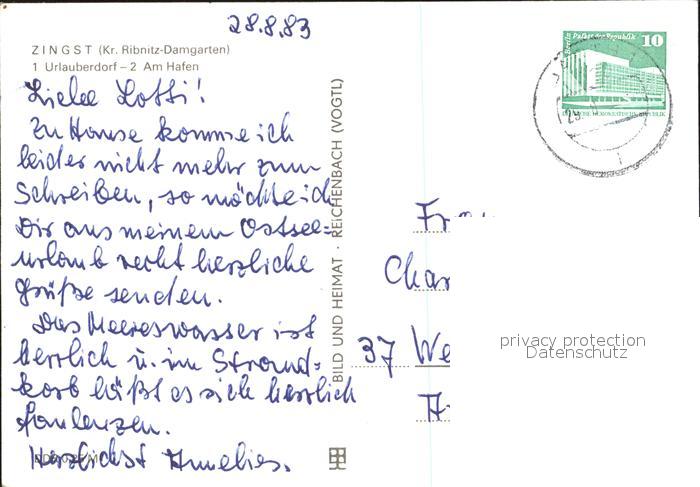 28.8.83
ZINGST (Kr. Ribnitz-Damgarten)
1 Urlauberdorf – 2 Am Hafen
Liebe Lotti!
Zu Hause komme ich
leider nicht mehr zum
Schreiben, so möchte ich
Dir aus meinem Ostsee=
urlaub recht herzliche
Grüße senden.
Das Meereswasser ist
herrlich u. im Strand=
korb läßt es sich herrlich
faulenzen.
Herzlichst Annelies.
BILD UND HEIMAT · REICHENBACH (VOGTL)
Berlin Palast der Republik 10
DEUTSCHE DEMOKRATISCHE REPUBLIK
Fr
Char
37 We
privacy protection
Datenschutz